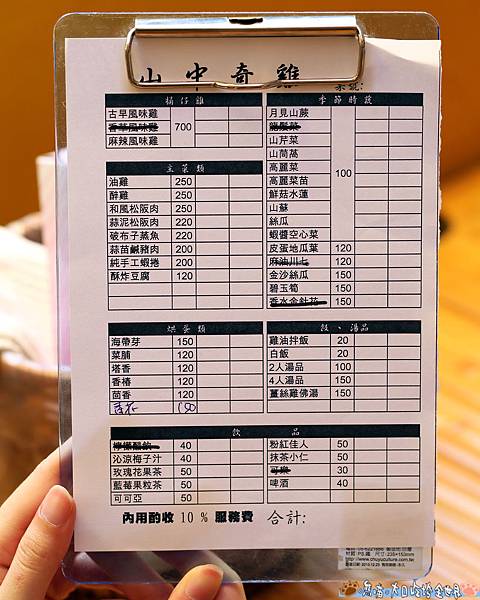 山中奇雞
桌號:
桶仔雞
古早風味雞 700
香草風味雞
麻辣風味雞
主菜類
油雞 250
醉雞 250
和風松阪肉 250
蒜泥松阪肉 220
破布子蒸魚 220
蒜苗鹹豬肉 200
純手工蝦捲 200
酥炸豆腐 120
烘蛋類
海帶芽 150
菜脯 120
塔香 120
香椿 120
茴香 120
季節時蔬
月見山蕨 100
龍鬚菜
山芹菜
山茼萵
高麗菜
高麗菜苗
鮮菇水蓮
山蘇
絲瓜
蝦醬空心菜
皮蛋地瓜葉 120
麻油川七 120
金沙絲瓜 150
碧玉筍 150
香水金針花 150
飯、湯品
雞油拌飯 20
白飯 20
2人湯品 100
4人湯品 150
薑絲雞佛湯 150
飲品
檸檬醋飲 40
沁涼梅子汁 40
玫瑰花果茶 50
藍莓果粒茶 50
可可亞 50
粉紅佳人 50
抹茶小仁 50
可樂 30
啤酒 40
內用酌收 10 % 服務費 合計:
http://www.chuyuculture.com.tw